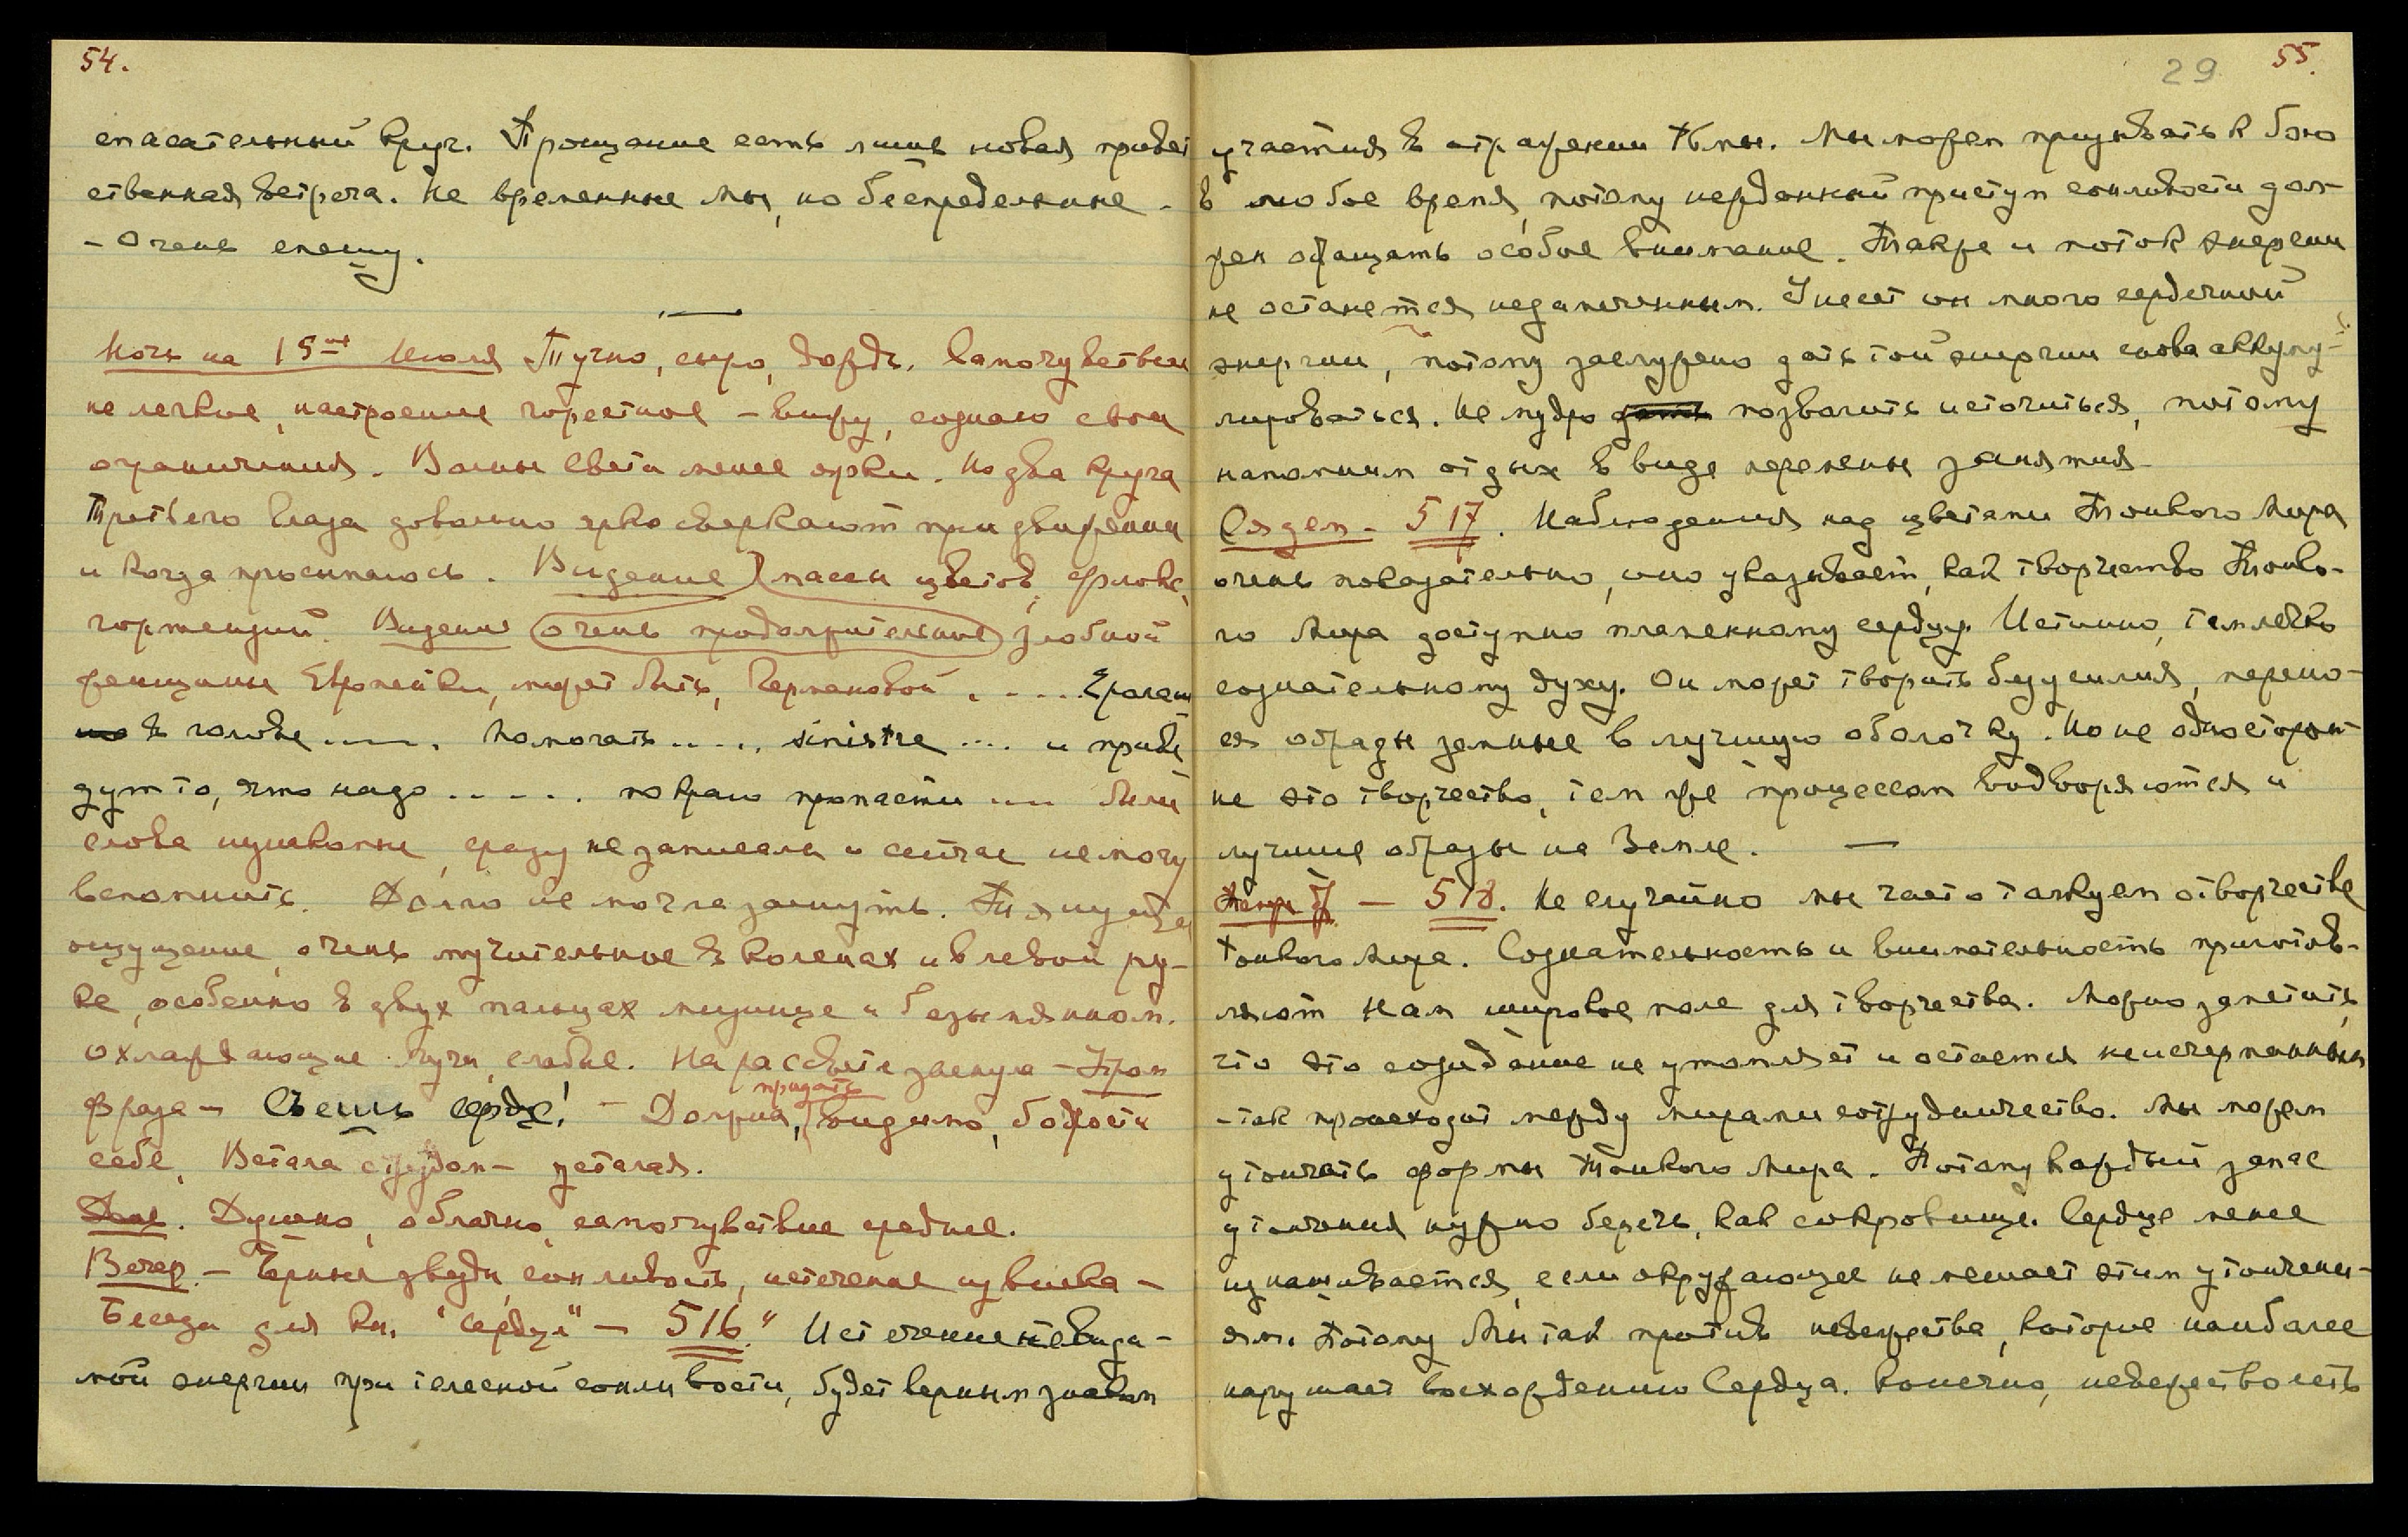 54.
спасательный круг. Прощание есть лишь новая привет
ственная встреча. Не временные мы, но беспредельные -
- Очень спешу.
Ночь на 15ое Июля Тучно, сыро, дождь. Самочувствие
не легкое, настроение горестное - вижу, сознаю свои
ограничения. Волны света менее ярки. Но два круга
Третьего Глаза довольно ярко сверкают при движении
и когда просыпаюсь. Видение массы цветов, флокс,
гортензий. Видение очень продолжительное злобной
женщины Европейки, может быть, Германовой. . . . . Ералаш
в голове ..... Помогать ..... sinistre .... и приве
дут то, что надо ..... по краю пропасти .... Были
слова мужском, сразу не записала и сейчас не могу
вспомнить. Долго не могла заснуть. Тянущее
ощущение, очень мучительное в коленах и в левой ру-
ке, особенно в двух пальцах мизинце и безымянном.
охлаждающие лучи, слабые. На рассвете заснула - Гром
фраза - Съешь сердце! - Должна, придать видимо, бодрости
себе. Встала с трудом - усталая.
День. Душно, облачно, самочувствие среднее.
Вечер. - Черные звезды, сонливость, истечение из виска -
Беседа для кн. "Сердце" - 516." Истечение невиди-
мой энергии при телесной сонливости, будет верным знаком
29 55.
участия в отражении тьмы. Мы можем призывать к бою
в любое время, потому нежданный приступ сонливости дол-
жен обращать особое внимание. Также и поток энергии
не останется незамеченным. Унесет он много сердечной
энергии, потому заслужено дать той энергии снова аккуму-
лироваться. Не мудро дать позволить источиться, потому
напомним отдых в виде перемены занятия.
Сядем - 517. Наблюдения над цветами Тонкого Мира
очень показательно, оно указывает, как творчество Тонко-
го Мира доступно пламенному сердцу. Истинно, так легко
сознательному духу. Он может творить без усилия, перено-
ся образы земные в лучшую оболочку. Но не односторон-
не это творчество, тем же процессом водворяются и
лучшие образы на Земле. —
518. Не случайно мы часто толкуем о творчестве
Тонкого Мира. Сознательность и внимательность приготов-
ляют нам широкое поле для творчества. Можно заметить,
что это созидание не утомляет и остается неисчерпанным
- так происходит между мирами сотрудничество. Мы можем
утончать формы Тонкого Мира. Потому каждый запас
утончения нужно беречь, как сокровище. Сердце менее
изнашивается, если окружающее не мешает этим утончени-
ям. Потому Мы так против невежества, которое наиболее
нарушает восхождению Сердца. Конечно, невежество есть